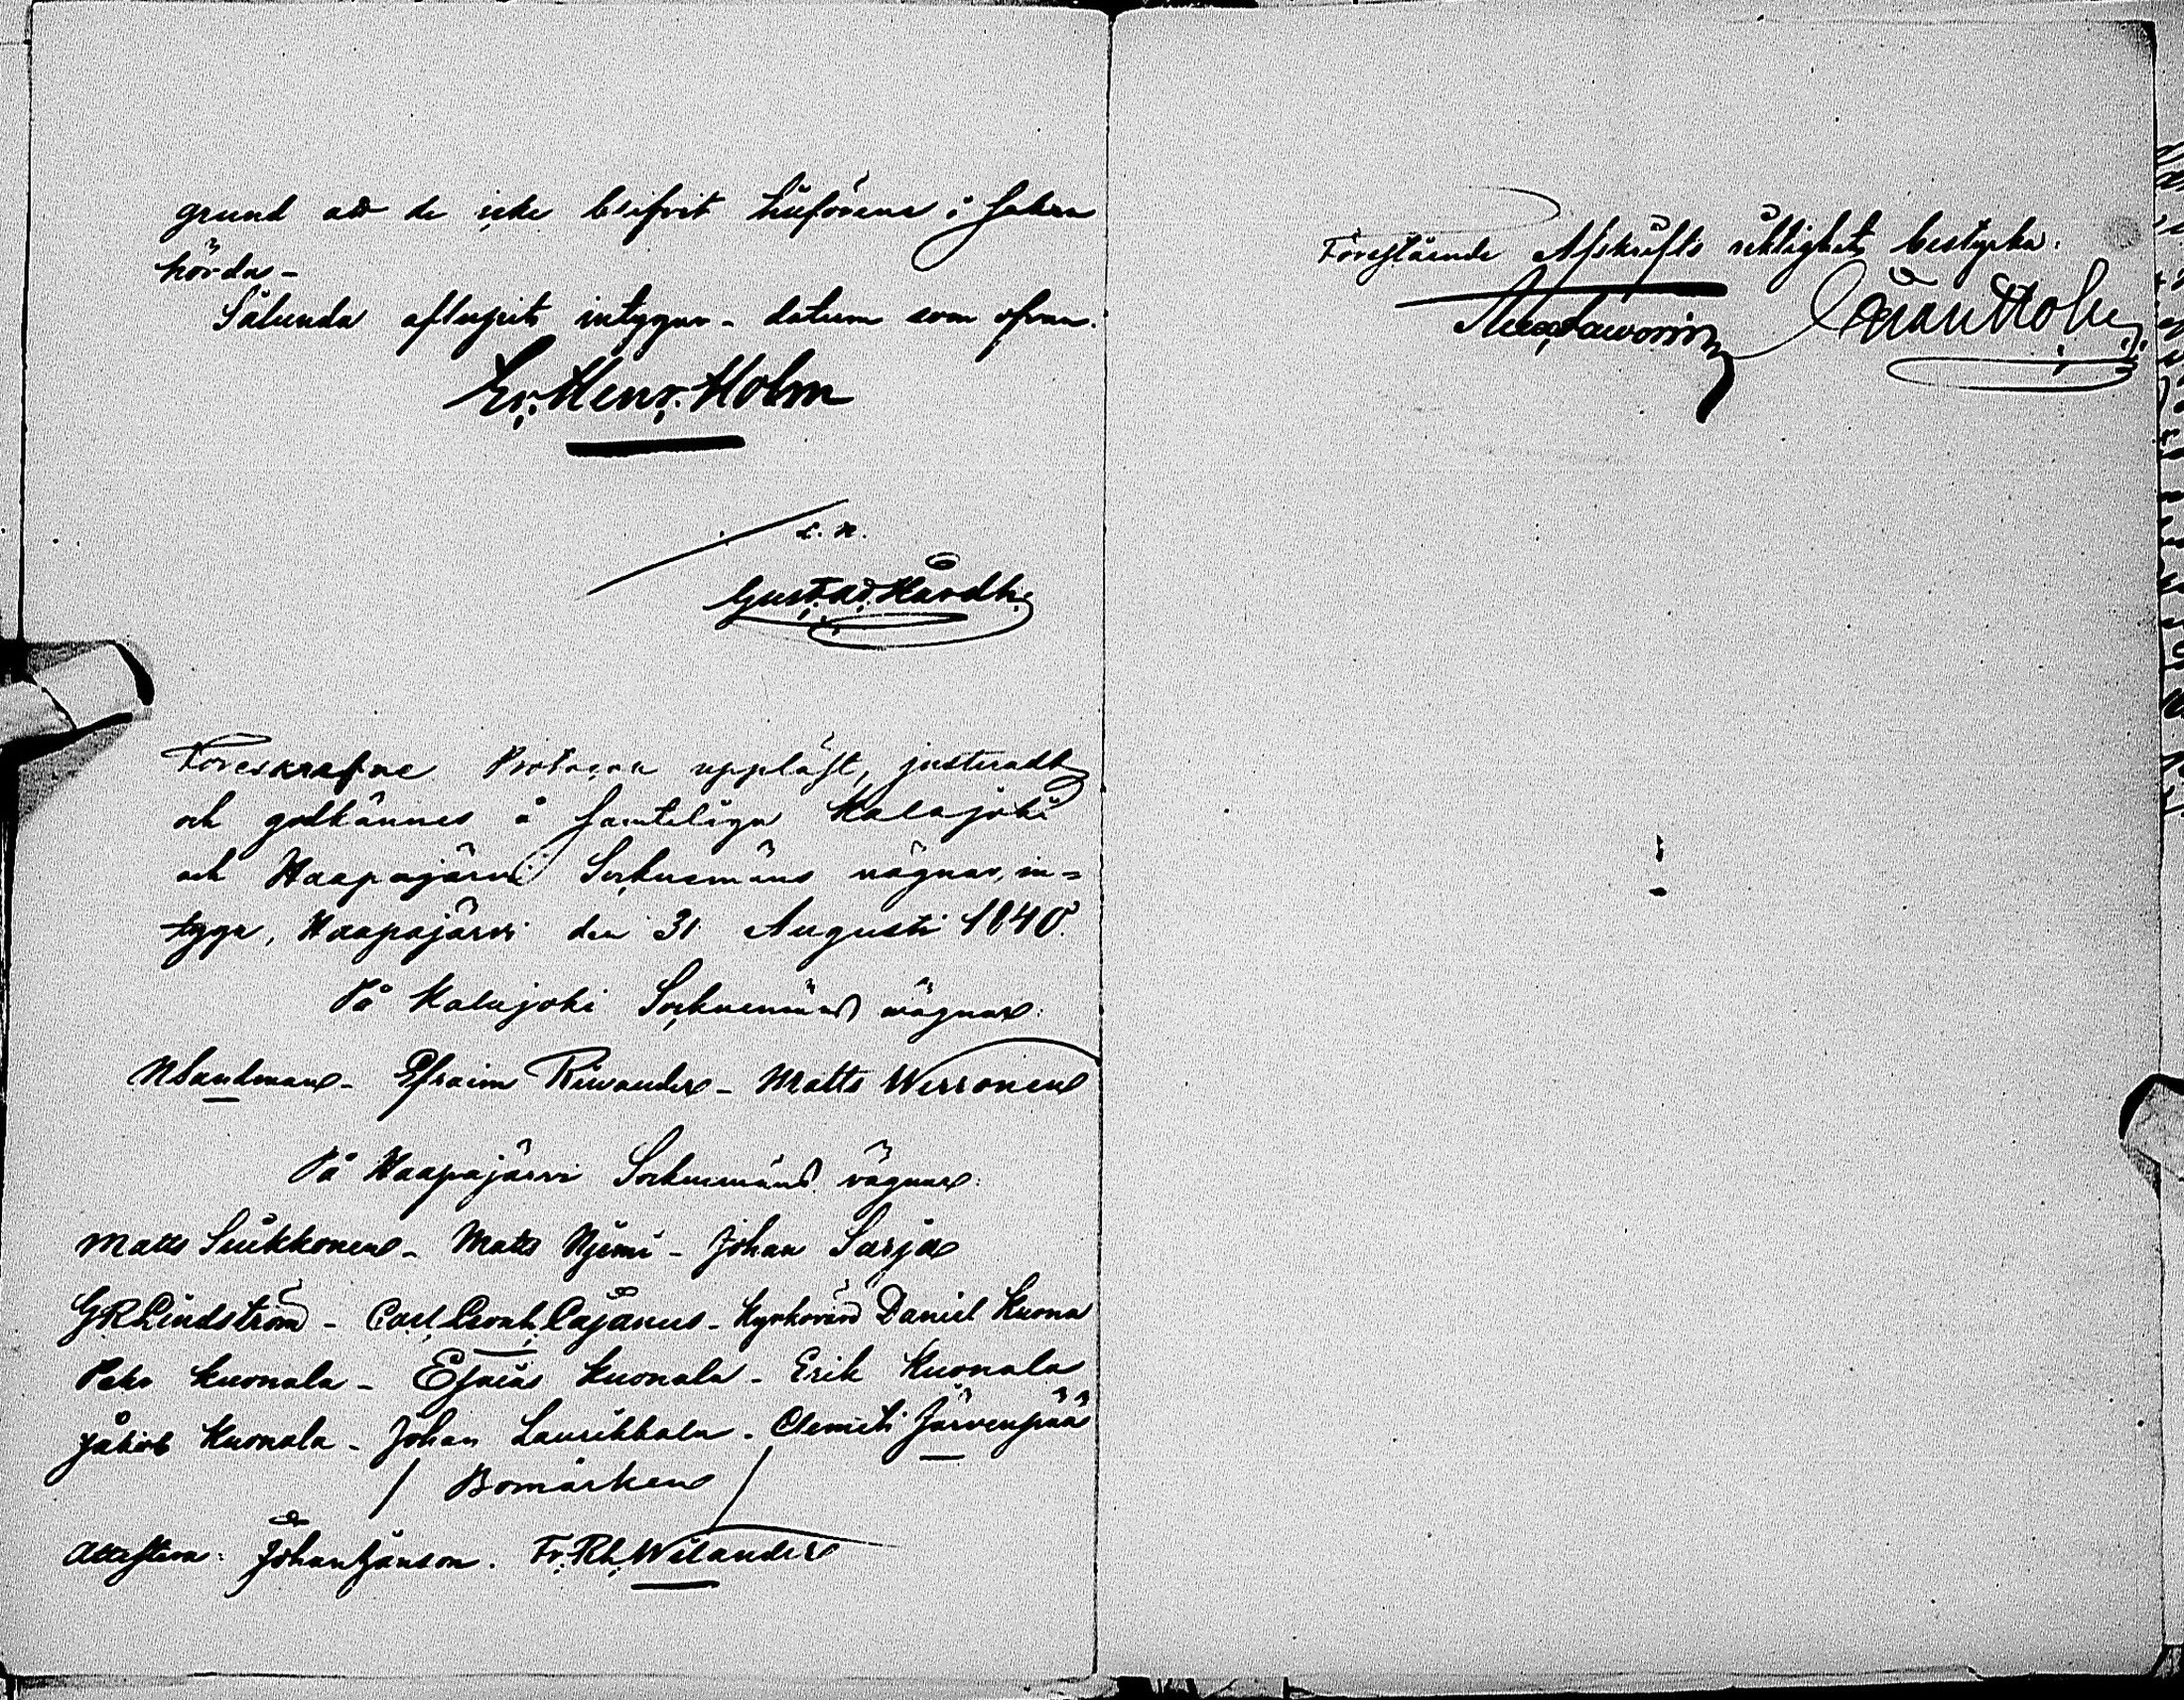 grund att de icke blifvit häröfver i saken
hörda -
Sålunda aflupit intygar - datum som ofvan.
Er. Henr. Holm
L. N.
Gustav Hårdh
Foreskrefne Protocoll uppläst, justeradt
och godkännes å samtelige Kalajoki
och Haapajärvi Sockenmäns vägnar, in=
tyga, Haapajärvi den 31 Augusti 1840.
På Kalajoki Sockenmäns vägnar:
N Sandman - Efraim Riwander - Matts Werronen
På Haapajärvi Sockenmäns vägnar:
Matts Suikkonen - Matts Njemi - Johan Sarja
G R Lindström - Carl Cajanus - Kyrkovärd Daniel Kuona
Petr Kuonala - Esaias Kuonala - Erik Kuonala
Jakob Kuonala - Johan Laurikkala - Clemeti Järvenpää
/ Bomärken /
Attestera: Johan Janson. Fr. Rh. Wilander
Förestående Afskrifts riktighet bestyrka:
Holm